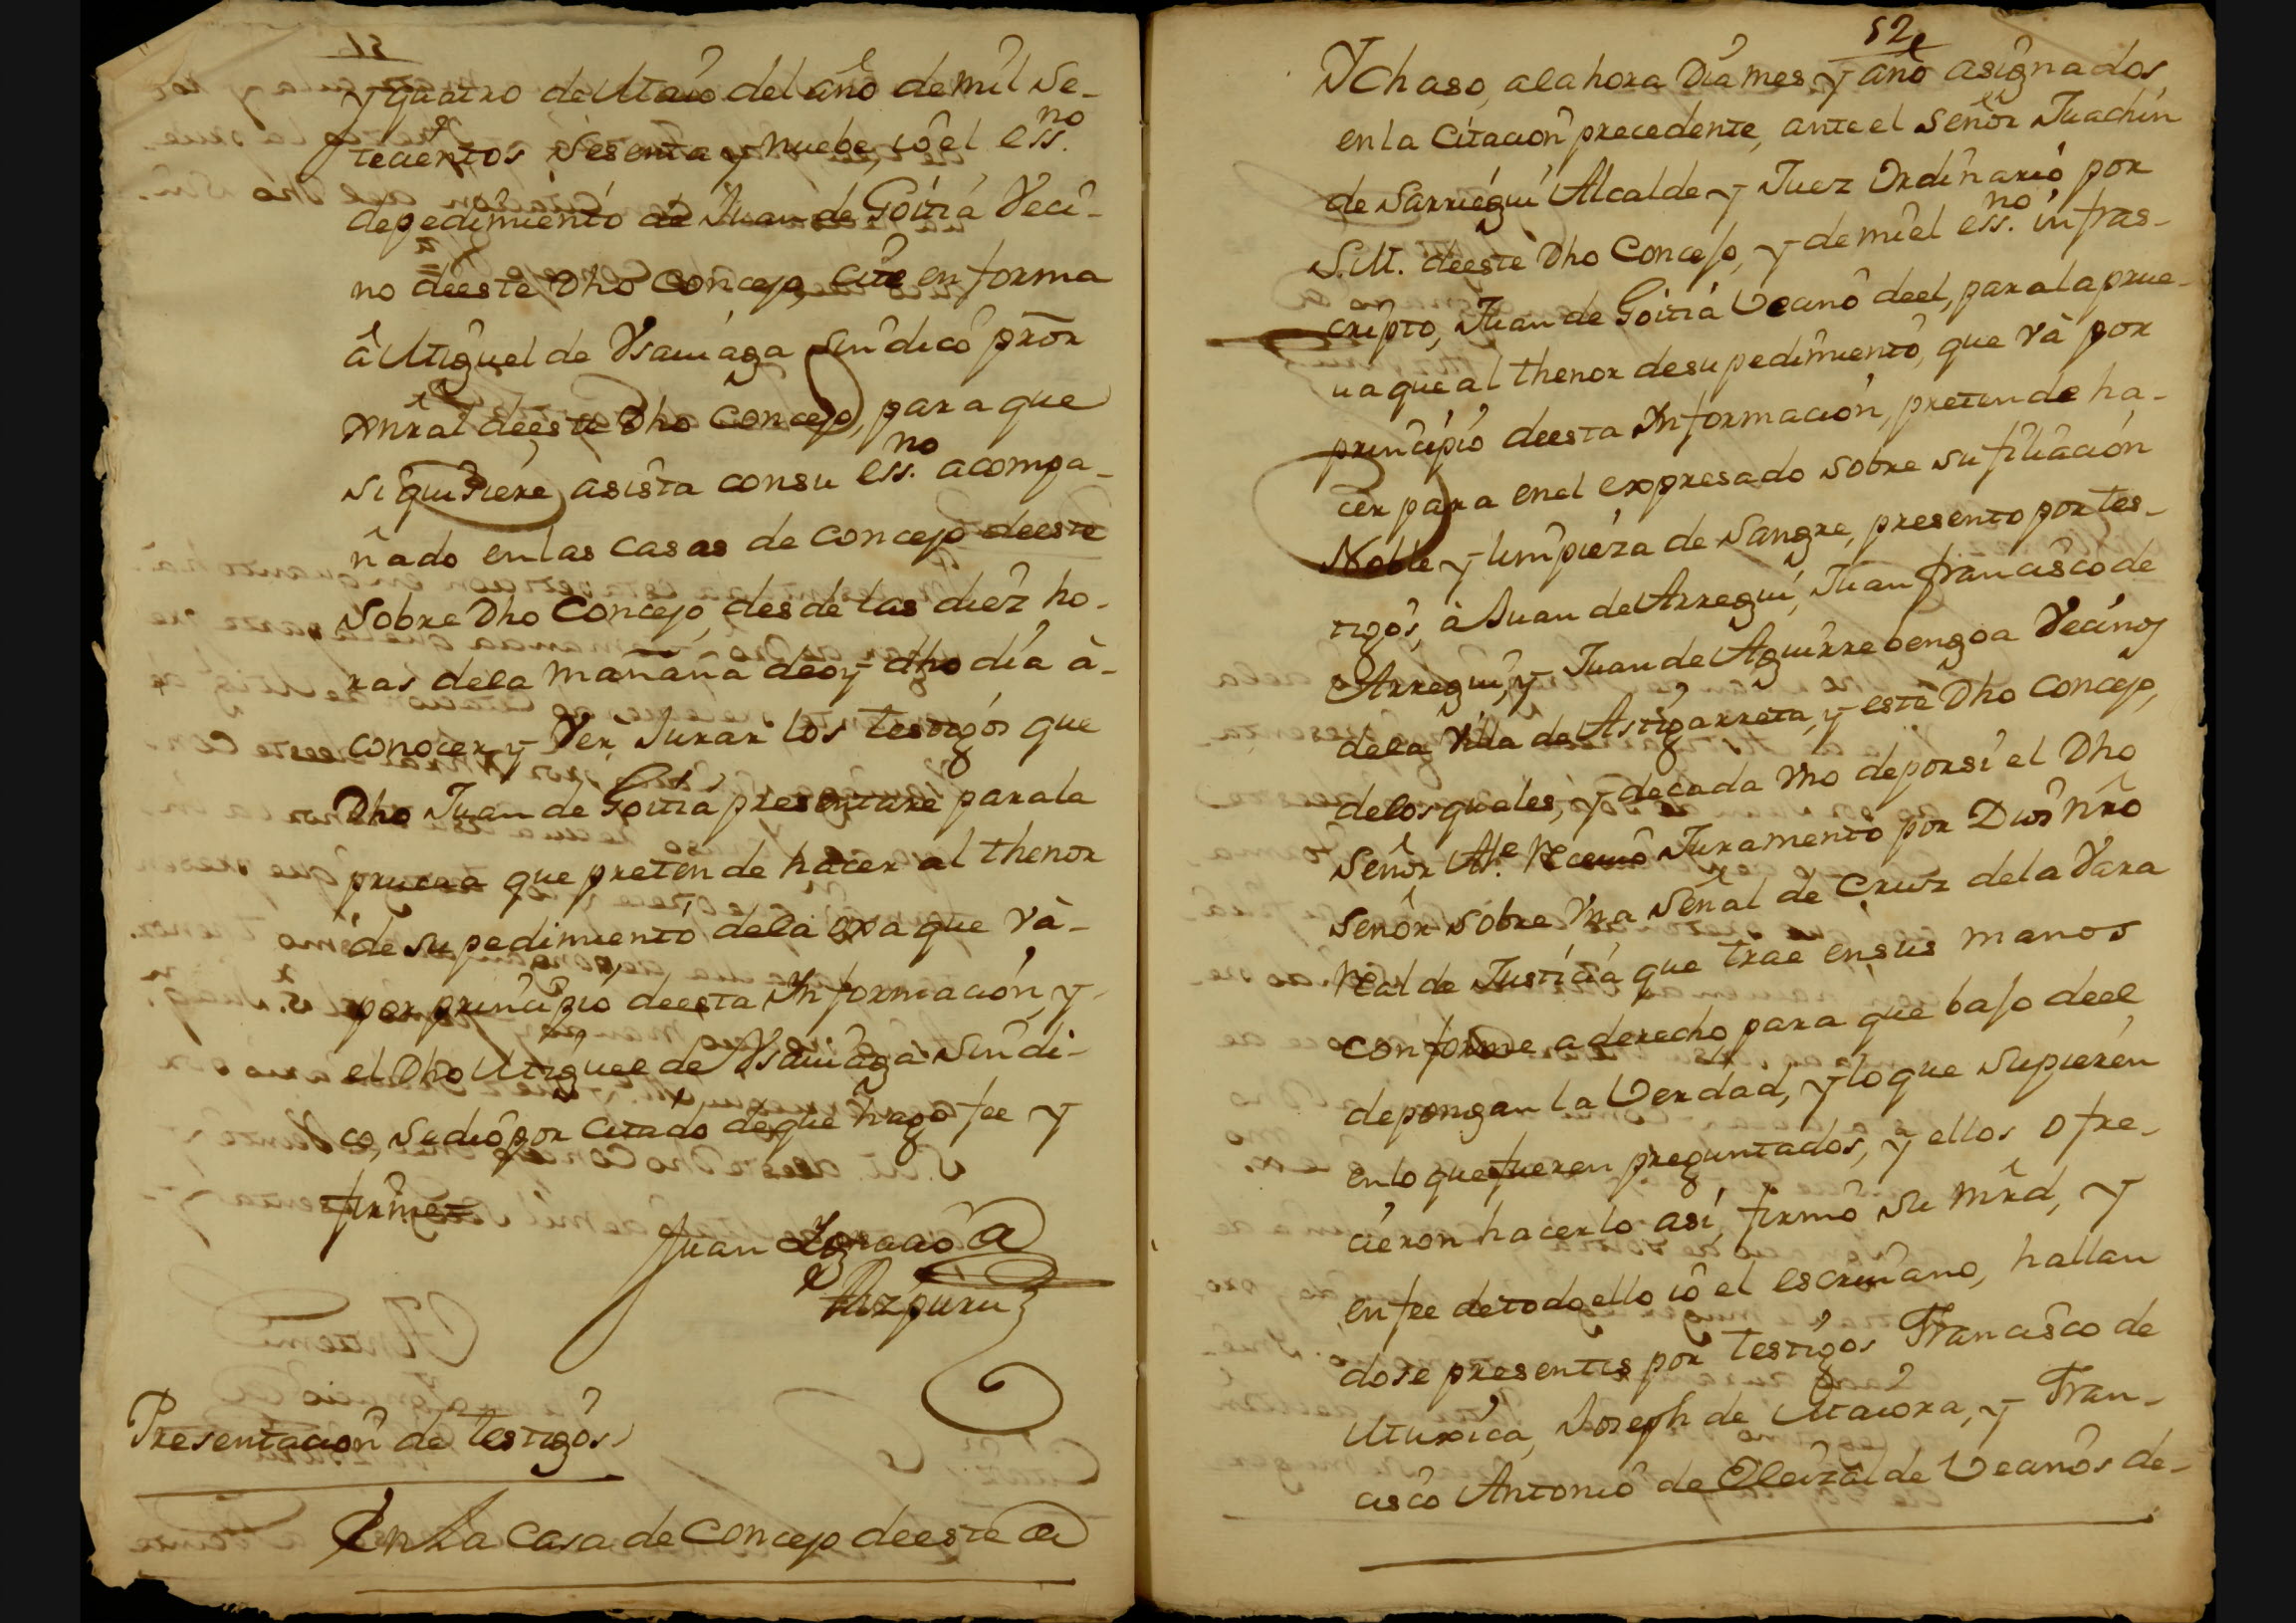 51
y quatro de Maio del año de mil Se-
tecientos Sesenta y nuebe, io el ess.no
de pedimiento de Juan de Goitia Veci-
no deeste Dho Concejo, cite en forma
â Miguel de Ysauiaga Sindico prôr
xnrâl deeste Dho Concejo, para que
si quisiere asista con su ess.no acompa-
ñado en las casas de concejo deeste
Sobre Dho Concejo, desde las diez ho-
ras dela mañana deoy dho dia à-
conocer, y Ver Jurar los testigos que
Dho Juan de Goitia presentare parala
prueua que pretende hacer al thenor
de su pedimiento dela oxa que và-
por principio deesta Ynformacion, y
el Dho Miguel de Ysauiaga Sindi-
co, se dio por citado de que hago fee y
firme=
Juan Ignacio
Aizpuru
Presentacion de testigos.
En La Casa de Concejo deeste
52
Ychaso, ala hora Dia mes, y año asignados
en la Citacion precedente, ante el Señor Juachin
de Sarriegui Alcalde y Juez Ordinario por
S.M. deeste Dho Concejo, y de mi el ess.no infras-
cripto, Juan de Goitia Vecino deel, para la prue-
ua que al thenor de su pedimiento, que và por
principio deesta Ynformacion, pretende ha-
cer para en el expresado sobre su filiacion
Noble y limpieza de Sangre, presento por tes-
tigos, à Juan de Arregui, Juan francisco de
Arregui, y Juan de Aguirrebengoa Vecinos
dela Villa de Astigarreta, y este Dho Concejo,
delos quales, y de cada Vno de por si el Dho
Señor Al.e Recivio Juramento por Dios Nrô
Señor sobre Vna Señal de Cruz dela Vara
Real de Justicia que trae en sus manos
conforme a derecho para que bajo deel
depongan la Verdad, y lo que Supieren
en lo que fueren preguntados, y ellos ofre-
cieron hacerlo asi, firmô su mrd, y
en fee de todo ello io el escriuano, hallan
dose presentes por testigos Francisco de
Muxica, Joseph de Maiora, y Fran-
cisco Antonio de Eleizalde Vecinos de-